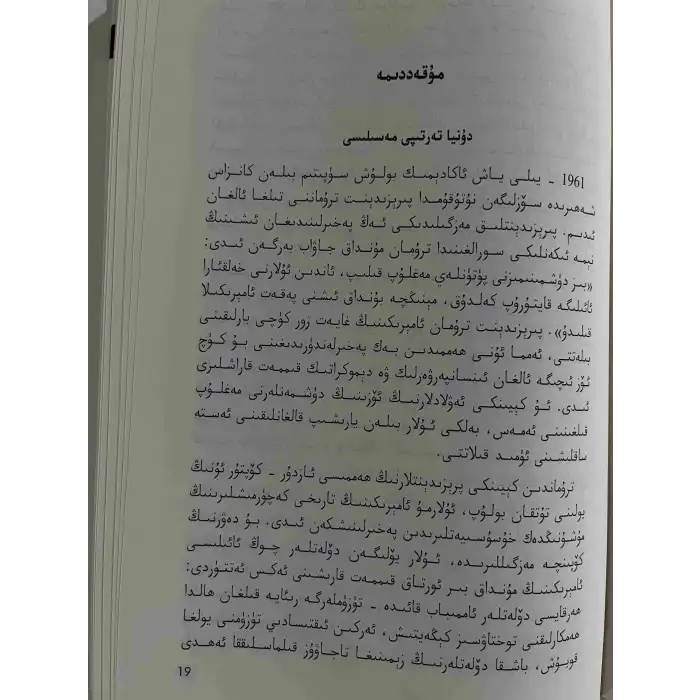 مۇقەددىمە
دۇنيا تەرتىپى مەسىلىسى
1961 - يىلى ياش ئاكادېمىك بولۇش سۈپىتىم بىلەن كانزاس
شەھىرىدە سۆزلىگەن نۇتۇقۇمدا پىرېزىدېنت ترۇماننى تىلغا ئالغان
ئىدىم. پىرېزىدېنتلىق مەزگىلىدىكى ئەڭ پەخىرلىنىدىغان ئىشىنىڭ
نېمە ئىكەنلىكى سورالغىنىدا ترۇمان مۇنداق جاۋاب بەرگەن ئىدى:
«بىز دۈشمىنىمىزنى پۈتۈنلەي مەغلۇپ قىلىپ، ئاندىن ئۇلارنى خەلقئارا
ئائىلىگە قايتۇرۇپ كەلدۇق، مېنىڭچە بۇنداق ئىشنى پەقەت ئامېرىكىلا
قىلىدۇ». پىرېزىدېنت ترۇمان ئامېرىكىنىڭ غايەت زور كۈچى بارلىقىنى
بىلەتتى، ئەمما ئۇنى ھەممىدىن بەك پەخىرلەندۈرىدىغىنى بۇ كۈچ
ئۆز ئىچىگە ئالغان ئىنسانپەرۋەرلىك ۋە دېموكراتىك قىممەت قاراشلىرى
ئىدى. ئۇ كېيىنكى ئەۋلادلارنىڭ ئۆزىنىڭ دۈشمەنلەرنى مەغلۇپ
قىلغىنىنى ئەمەس، بەلكى ئۇلار بىلەن يارىشىپ قالغانلىقىنى ئەستە
ساقلىشىنى ئۈمىد قىلاتتى.
ترۇماندىن كېيىنكى پرېزىدېنتلارنىڭ ھەممىسى ئازدۇر - كۆپتۇر ئۇنىڭ
يولىنى تۇتقان بولۇپ، ئۇلارمۇ ئامېرىكىنىڭ تارىخى كەچۈرمىشلىرىنىڭ
مۇشۇنىڭدەك خۇسۇسىيەتلىرىدىن پەخىرلىنىشكەن ئىدى. بۇ دەۋرنىڭ
كۆپىنچە مەزگىللىرىدە، ئۇلار يۆلىگەن دۆلەتلەر چوڭ ئائىلىسى
ئامېرىكىنىڭ مۇنداق بىر ئورتاق قىممەت قارىشىنى ئەكس ئەتتۈردى:
ھەرقايسى دۆلەتلەر ئاممىباب قائىدە - تۈزۈملەرگە رىئايە قىلغان ھالدا
ھەمكارلىقنى توختاۋسىز كېڭەيتىش، ئەركىن ئىقتىسادىي تۈزۈمنى يولغا
قويۇش، باشقا دۆلەتلەرنىڭ زېمىنىغا تاجاۋۇز قىلماسلىققا ئەھدى
19